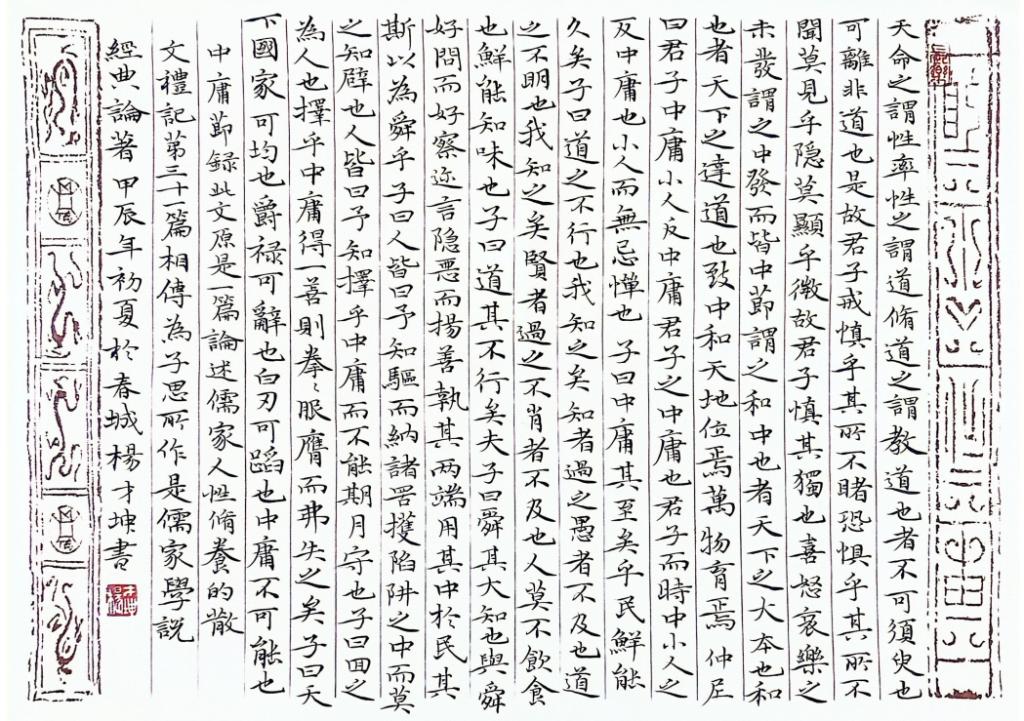 天命之謂性率性之謂道脩道之謂教道也者不可須臾也
可離非道也是故君子戒慎乎其所不睹恐惧乎其所不
聞莫見乎隐莫顯乎微故君子慎其獨也喜怒哀樂之
未發謂之中發而皆中節謂之和中也者天下之大本也和
也者天下之達道也致中和天地位焉萬物育焉 仲尼
曰君子中庸小人反中庸君子之中庸也君子而時中小人之
反中庸也小人而無忌憚也 子曰中庸其至矣乎民鮮能
久矣子曰道之不行也我知之矣知者過之愚者不及也道
之不明也我知之矣賢者過之不肖者不及也人莫不飲食
也鮮能知味也子曰道其不行矣夫子曰舜其大知也與舜
好問而好察迩言隐恶而揚善執其两端用其中於民其
斯以為舜乎子曰人皆曰予知驅而納諸罟擭陷阱之中而莫
之知辟也人皆曰予知擇乎中庸而不能期月守也子曰回之
為人也擇乎中庸得一善則拳〻服膺而弗失之矣子曰天
下國家可均也爵禄可辭也白刃可蹈也中庸不可能也
中庸節録此文原是一篇論述儒家人性脩養的散
文禮記第三十一篇相傳為子思所作是儒家學説
經典論著甲辰年初夏於春城楊才坤書